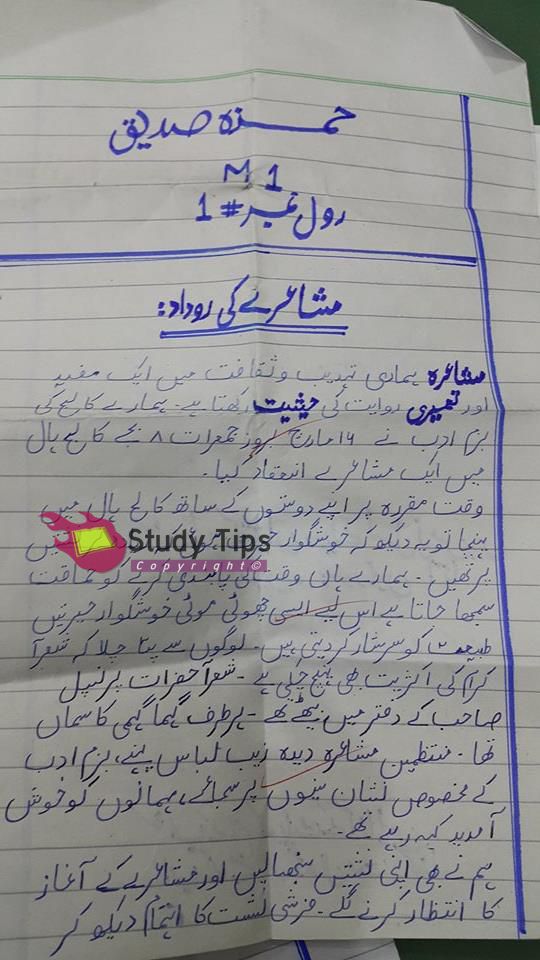 حمزہ صدیق
M 1
رول نمبر # 1
مشاعرے کی روداد:
مشاعرہ ہماری تہذیب وثقافت میں ایک مفید
اور تعمیری روایت کی حیثیت رکھتا ہے۔ ہمارے کالج کی
بزم ادب نے ١٦ مارچ بروز جمعرات ٨ بجے کالج ہال
میں ایک مشاعرے انعقاد کیا۔
وقت مقررہ پر اپنے دوستوں کے ساتھ کالج ہال میں
پہنچا تو یہ دیکھ کہ خوشگوار
Study Tips
Copyright©
پر تھیں۔ ہمارے ہاں وقت کی پابندی کرنے کو حماقت
سمجھا جاتا ہے اس لیے ایسی چھوٹی موٹی خوشگوار حیرتیں
کو سرشار کر دیتی ہیں۔ لوگوں سے پتا چلا کہ شعرآ
کرام کی اکثریت بھی پہنچ چکی ہے۔ شعرآ حضرات پرنسپل
صاحب کے دفتر میں بیٹھے تھے۔ ہر طرف گہما گہمی کا سماں
تھا۔ منتظمین مشاعرہ دیدہ زیب لباس پہنے، بزم ادب
کے مخصوص نشان سینوں پر سجائے، مہمانوں کو خوش
آمدید کہہ رہے تھے۔
ہم نے بھی اپنی نشستیں سنبھالیں اور مشاعرے کے آغاز
کا انتظار کرنے لگے۔ فرشی نشست کا اہتمام دیکھ کر